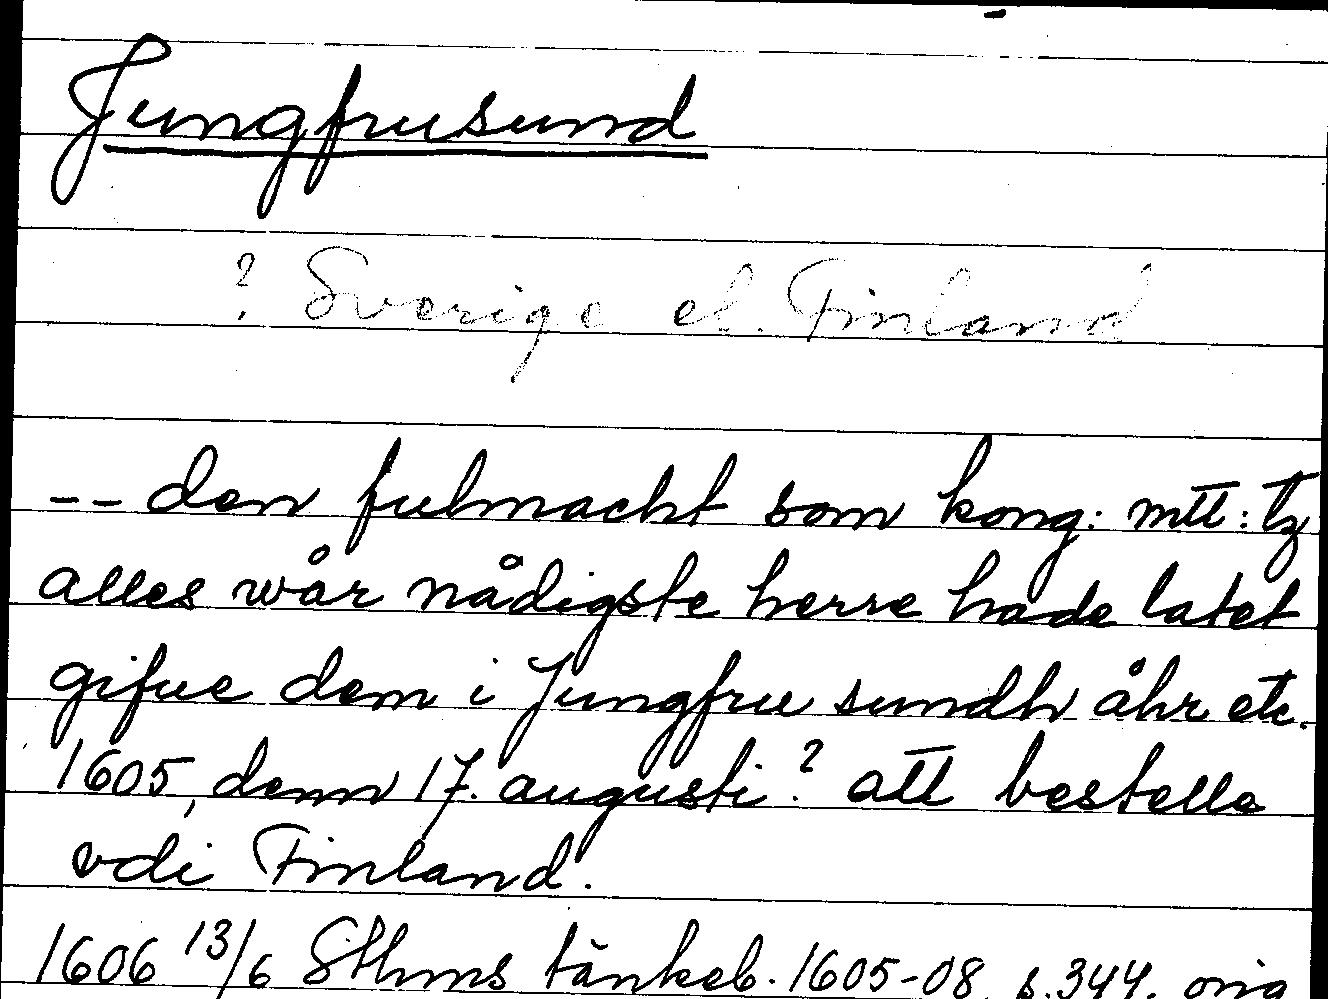 Jungfrusund
? Sverige el. Finland
-- den fulmacht som kong: mtt: tz
alles wår nådigste herre hade latet
gifue dem i Jungfrue sundh åhr etc.
1605, denn 17. augusti? att bestella
vdi Finland.
1606 13/6 Sthms tänkeb. 1605-08 s. 344. orig